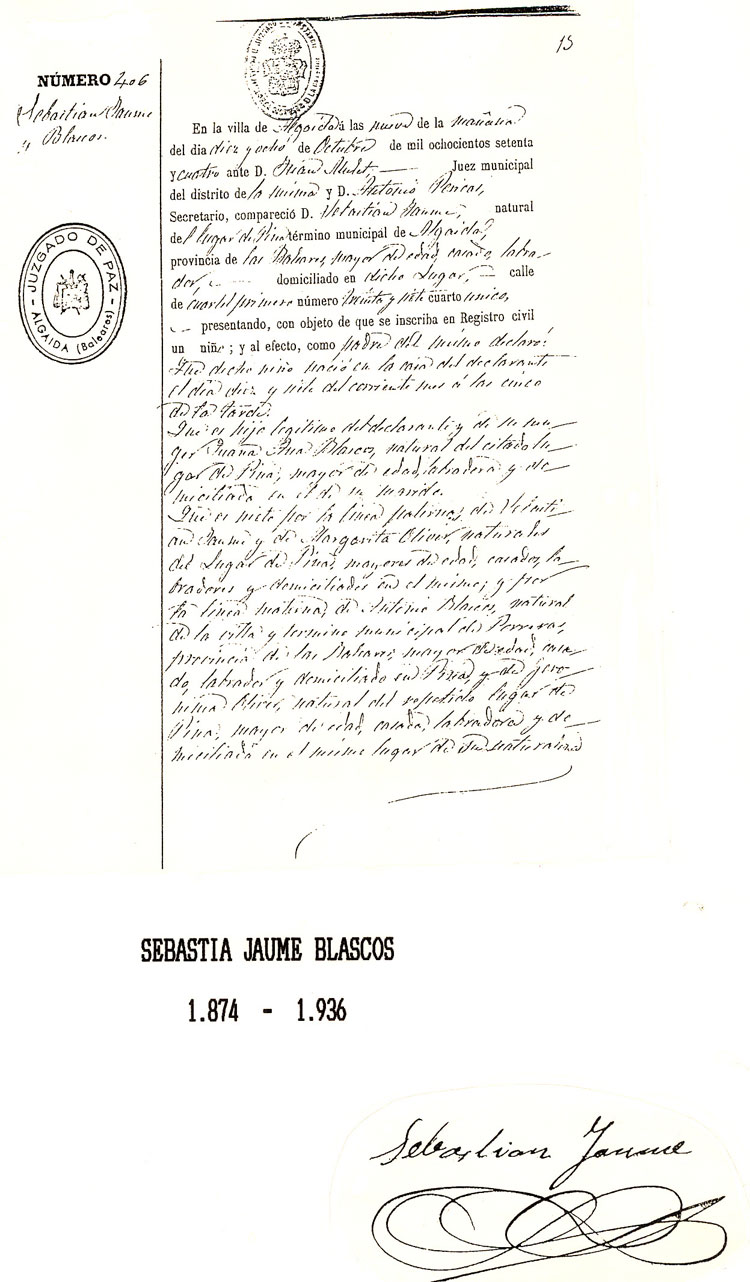 15
NÚMERO 406
Sebastian Jaume
y Blascos.
JUZGADO DE PAZ
ALGAIDA (Baleares)
En la villa de Algaida á las nueve de la mañana
del dia diez y ocho de Octubre de mil ochocientos setenta
y cuatro ante D. Juan Mulet, Juez municipal
del distrito de la misma y D. Antonio
Secretario, compareció D. Sebastian Jaume, natural
del Lugar de Pina término municipal de Algaida,
provincia de las Baleares, mayor de edad, casado, labra-
dor, domiciliado en dicho Lugar, calle
de cuartel primero número treinta y siete cuarto unico,
presentando, con objeto de que se inscriba en Registro civil
un niño; y al efecto, como padre del mismo declaró:
Que dicho niño nació en la casa del declarante
el dia diez y siete del corriente mes á las cinco
de la tarde.
Que es hijo legitimo del declarante y de su mu-
ger Juana Ana Blascos, natural del citado lu-
gar de Pina, mayor de edad, labradora y do-
miciliada en el de su marido.
Que es nieto por la linea paterna, de Sebasti-
an Jaume y de Margarita Oliver, naturales
del Lugar de Pina, mayores de edad, casados, la-
bradores y domiciliados en el mismo; y por
la linea materna, de Antonio Blascos, natural
de la villa y termino municipal de Porreras,
provincia de las Baleares, mayor de edad, casa-
do, labrador y domiciliado en Pina, y de Gero-
nima Oliver, natural del repetido lugar de
Pina, mayor de edad, casada, labradora y do-
miciliada en el mismo lugar de su naturaleza
SEBASTIA JAUME BLASCOS
1.874 - 1.936
Sebastian Jaume